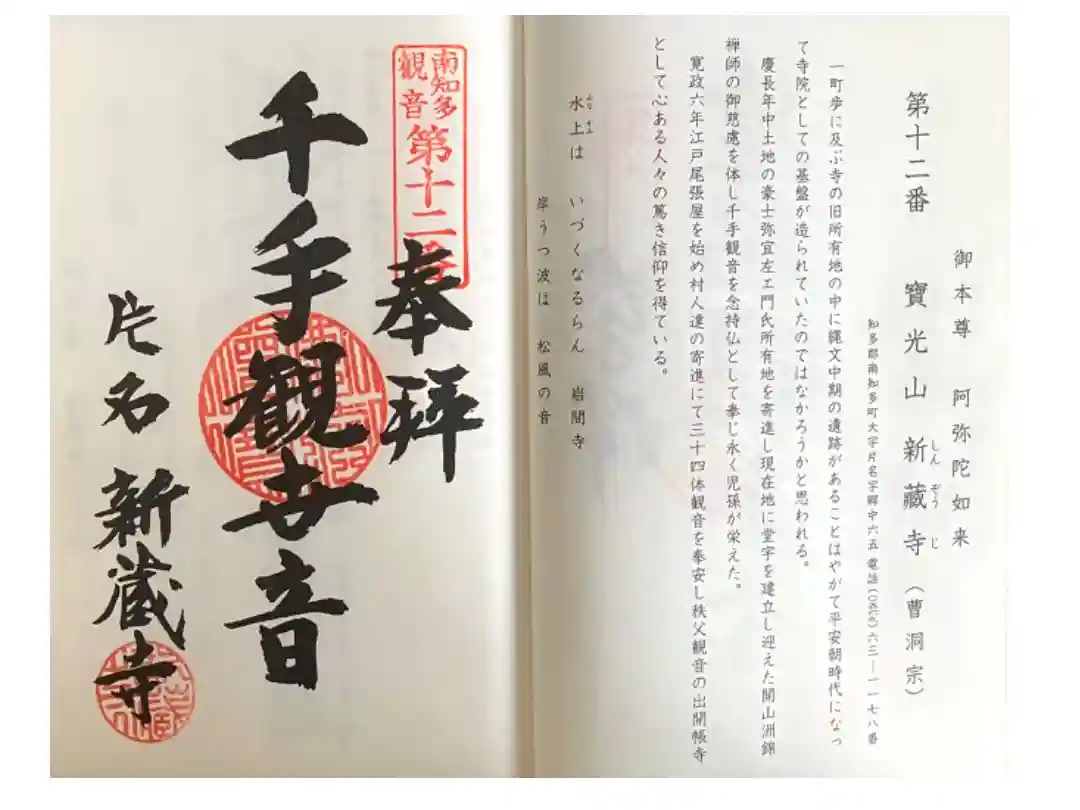 御本尊 阿弥陀如来
第十二番 寶光山 新藏寺（曹洞宗）
しんぞうじ
知多郡南知多町大字片名字郷中六五 電話(〇五六九)六三―一一七八番
一町歩に及ぶ寺の旧所有地の中に縄文中期の遺跡があることはやがて平安朝時代になっ
て寺院としての基盤が造られていたのではなかろうかと思われる。
慶長年中土地の豪士弥宜左エ門氏所有地を寄進し現在地に堂宇を建立し迎えた開山洲錦
禅師の御慈慮を体し千手観音を念持仏として奉じ永く児孫が栄えた。
寛政六年江戸尾張屋を始め村人達の寄進にて三十四体観音を奉安し秩父観音の出開帳寺
として心ある人々の篤き信仰を得ている。
水上は いづくなるらん 岩間寺
岸うつ波は 松風の音
南知多
観音
第十二番
奉拝
千手観世音
片名 新蔵寺